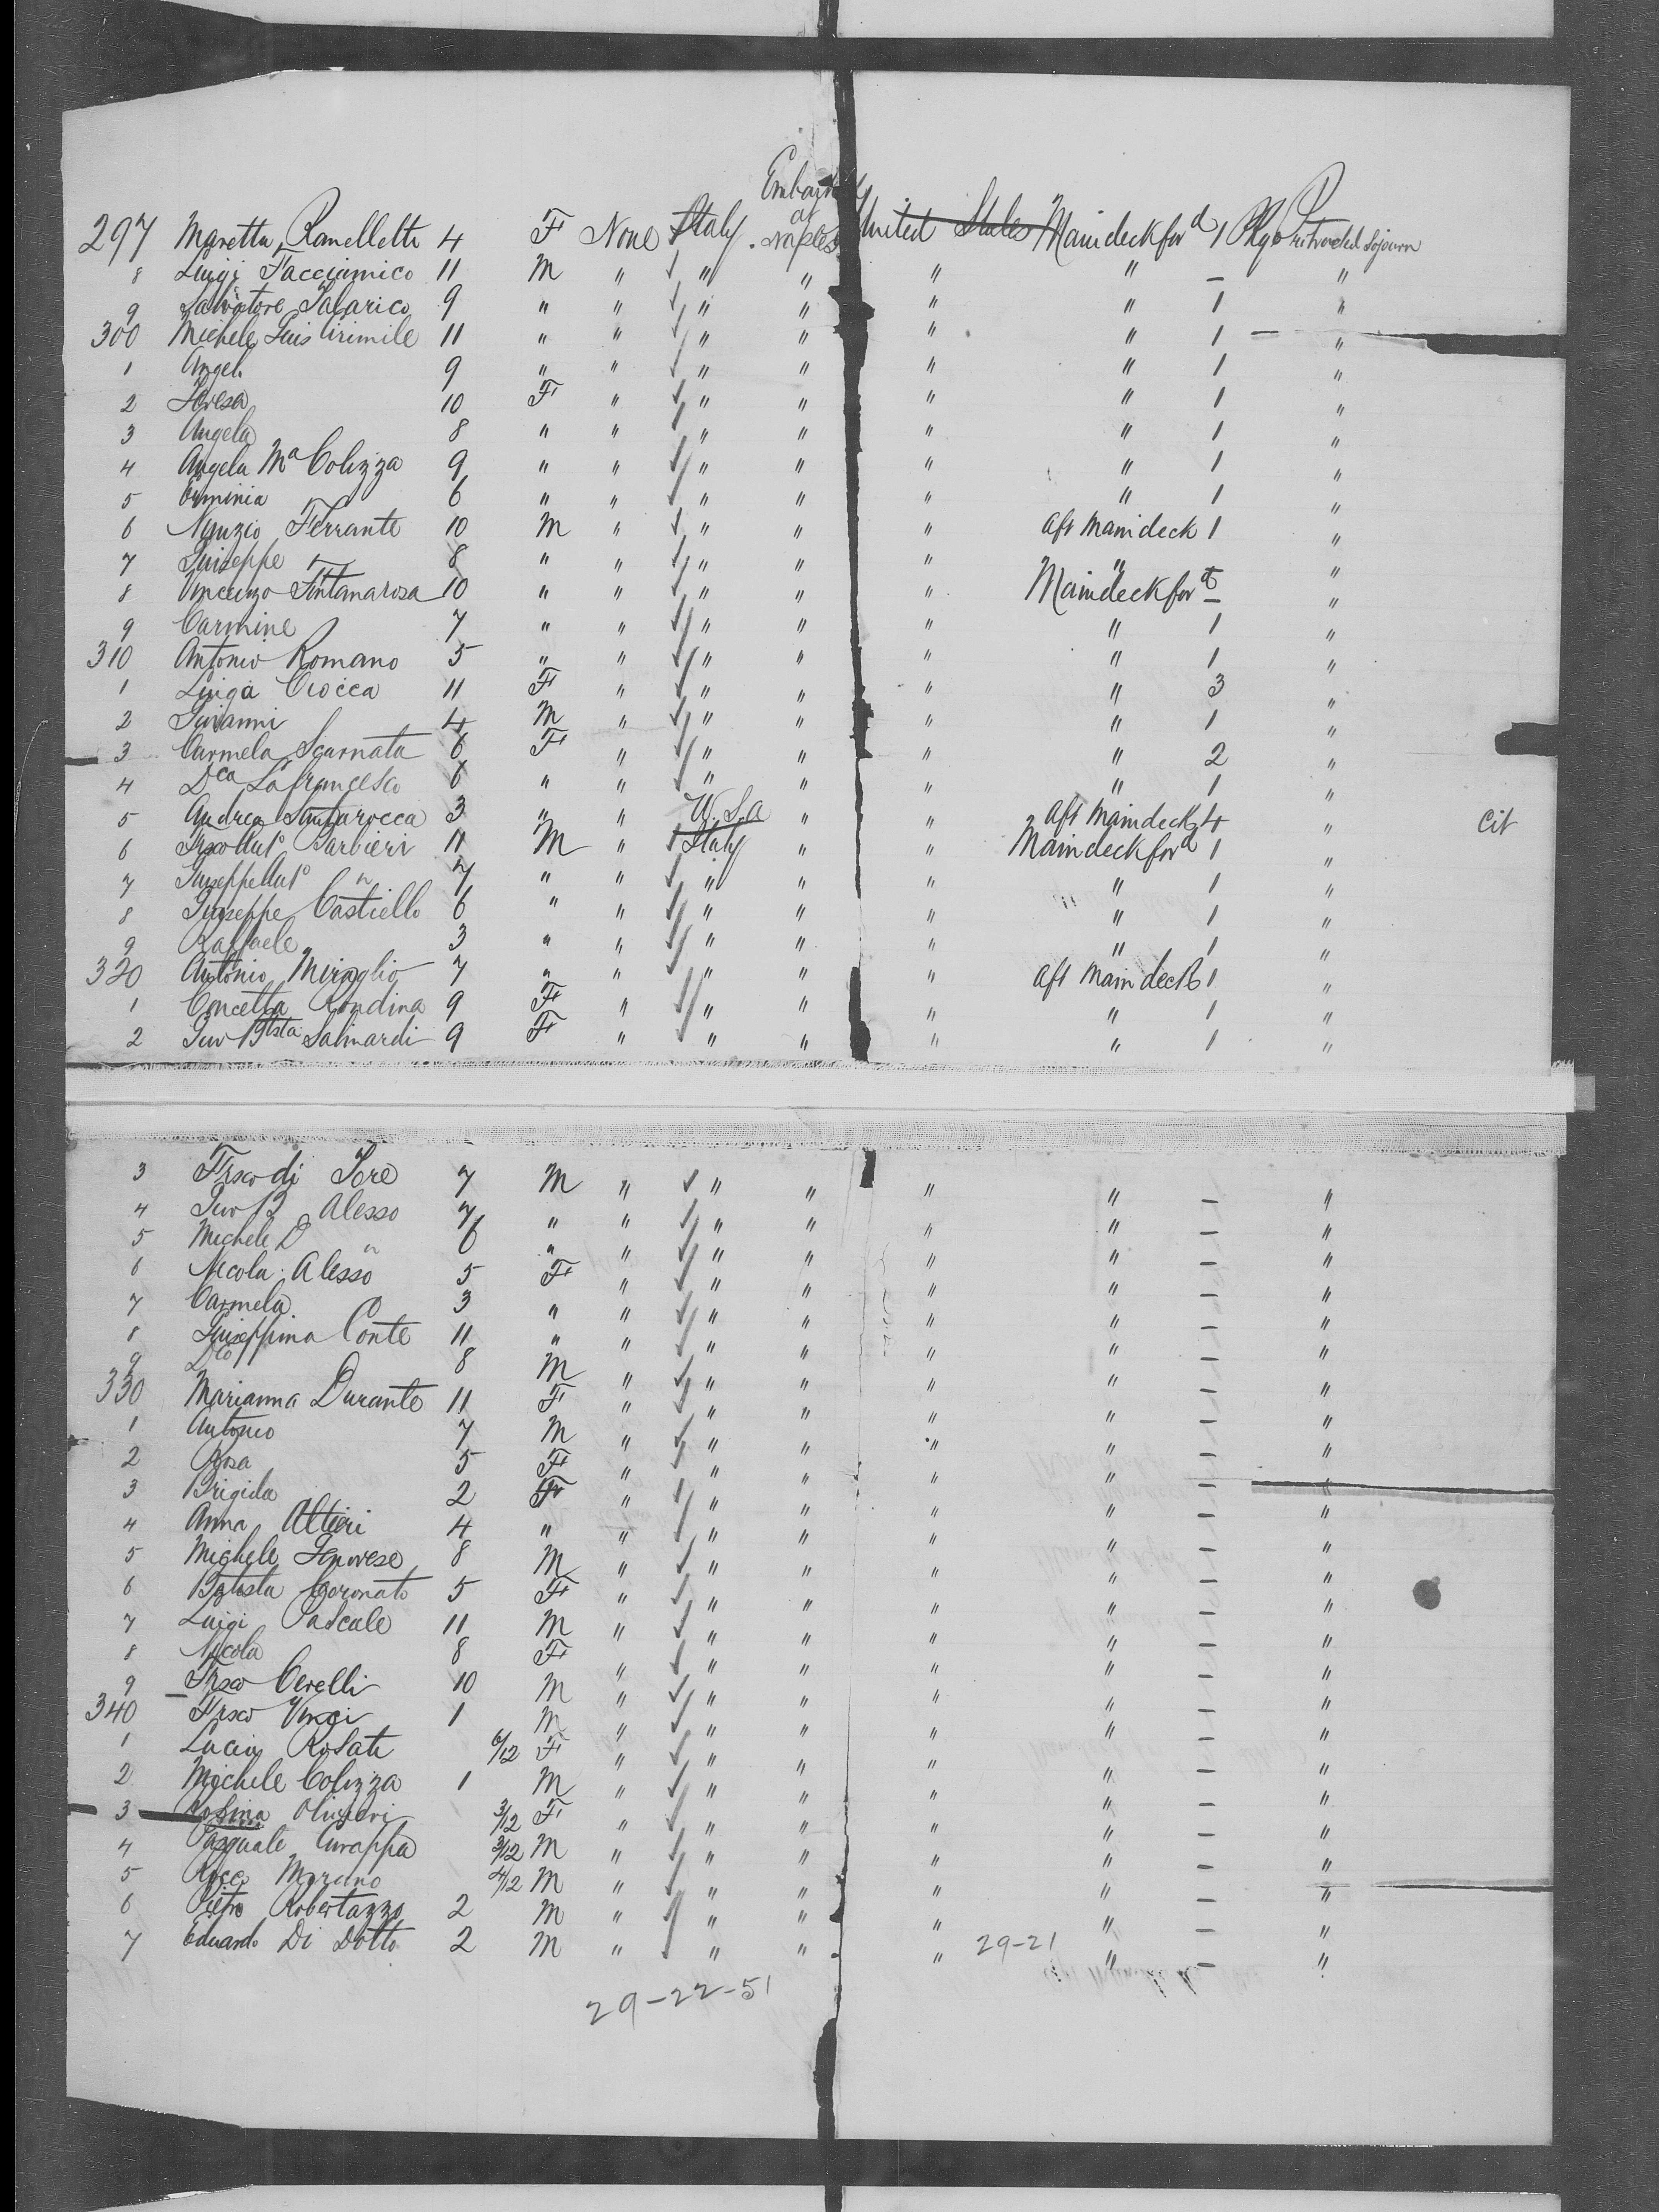 Embarked at
297 Maretta Ranelletti 4 F None Italy Naples United States Main deck for d 1 Pkge Protracted Sojourn
8 Luigi Facciamico 11 M " " " " " - "
9 Salvatore Talarico 9 " " " " " " 1 "
300 Michele 11 " " " " " " 1 "
1 Angel. 9 " " " " " " 1 "
2 Teresa 10 F " " " " " 1 "
3 Angela 8 " " " " " " 1 "
4 Angela Ma Colizza 9 " " " " " " 1 "
5 Erminia 6 " " " " " " 1 "
6 Nunzio Ferrante 10 M " " " " aft Main deck 1 "
7 Guiseppe 8 " " " " " " "
8 Vincenzo Fontanarosa 10 " " " " " Main deck for d - "
9 Carmine 7 " " " " " " 1 "
310 Antonio Romano 5 " " " " " " 1 "
1 Luiga Ciocca 11 F " " " " " 3 "
2 Giovanni 4 M " " " " " 1 "
3 Carmela Scarnata 6 F " " " " " 2 "
4 Dca Lafrancesco 6 " " " " " " 1 "
5 Andrea Santarocca 3 " " U.S.a " " aft Main deck 4 " Cit
6 Barbieri 11 M " Italy " " Main deck for d 1 "
7 Guiseppe " 7 " " " " " " 1 "
8 Guiseppe Castiello 6 " " " " " " 1 "
9 Raffaele 3 " " " " " " 1 "
320 Antonio Miraglio 7 " " " " " aft Main deck 1 "
1 Concetta Rondina 9 F " " " " " 1 "
2 Giov Btsta Salinardi 9 F " " " " " 1 "
3 Frsco di Tore 7 M " " " " " - "
4 Giov B Alesso 7 " " " " " " - "
5 Michele D " 6 " " " " " " - "
6 Nicola Alesso 5 F " " " " " - "
7 Carmela 3 " " " " " " - "
8 Guiseppina Conte 11 " " " " " " - "
9 Dco 8 M " " " " " - "
330 Marianna Durante 11 F " " " " " - "
1 Antonio 7 M " " " " " - "
2 Rosa 5 F " " " " " - "
3 Brigida 2 F " " " " " - "
4 Anna Altieri 4 " " " " " " - "
5 Michele Genovese 8 M " " " " " - "
6 Batista Coronato 5 F " " " " " - "
7 Luigi Pascale 11 M " " " " " - "
8 Nicola 8 F " " " " " - "
9 Frsco Cerelli 10 M " " " " " - "
340 Frsco Vinci 1 M " " " " " - "
1 Lucia Rosati 6/12 F " " " " " - "
2 Michele Colizza 1 M " " " " " - "
3 Rosina Olivieri 3/12 F " " " " " - "
4 Pasquale Curappa 3/12 M " " " " " - "
5 Rocco Moreno 4/12 M " " " " " - "
6 Pietro Robertazzo 2 M " " " " " - "
7 Eduardo Di Dotto 2 M " " " " 29-21 " - "
29-22-51